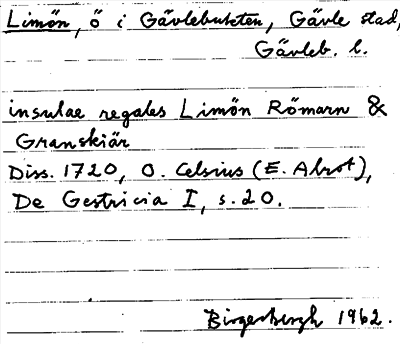 Limön, ö i Gävlebukten, Gävle stad,
Gävleb. l.
insulae regales Limön Römarn &
Granskiär
Diss. 1720, O. Celsius (E. Abrot),
De Gestricia I, s. 20.
1962.